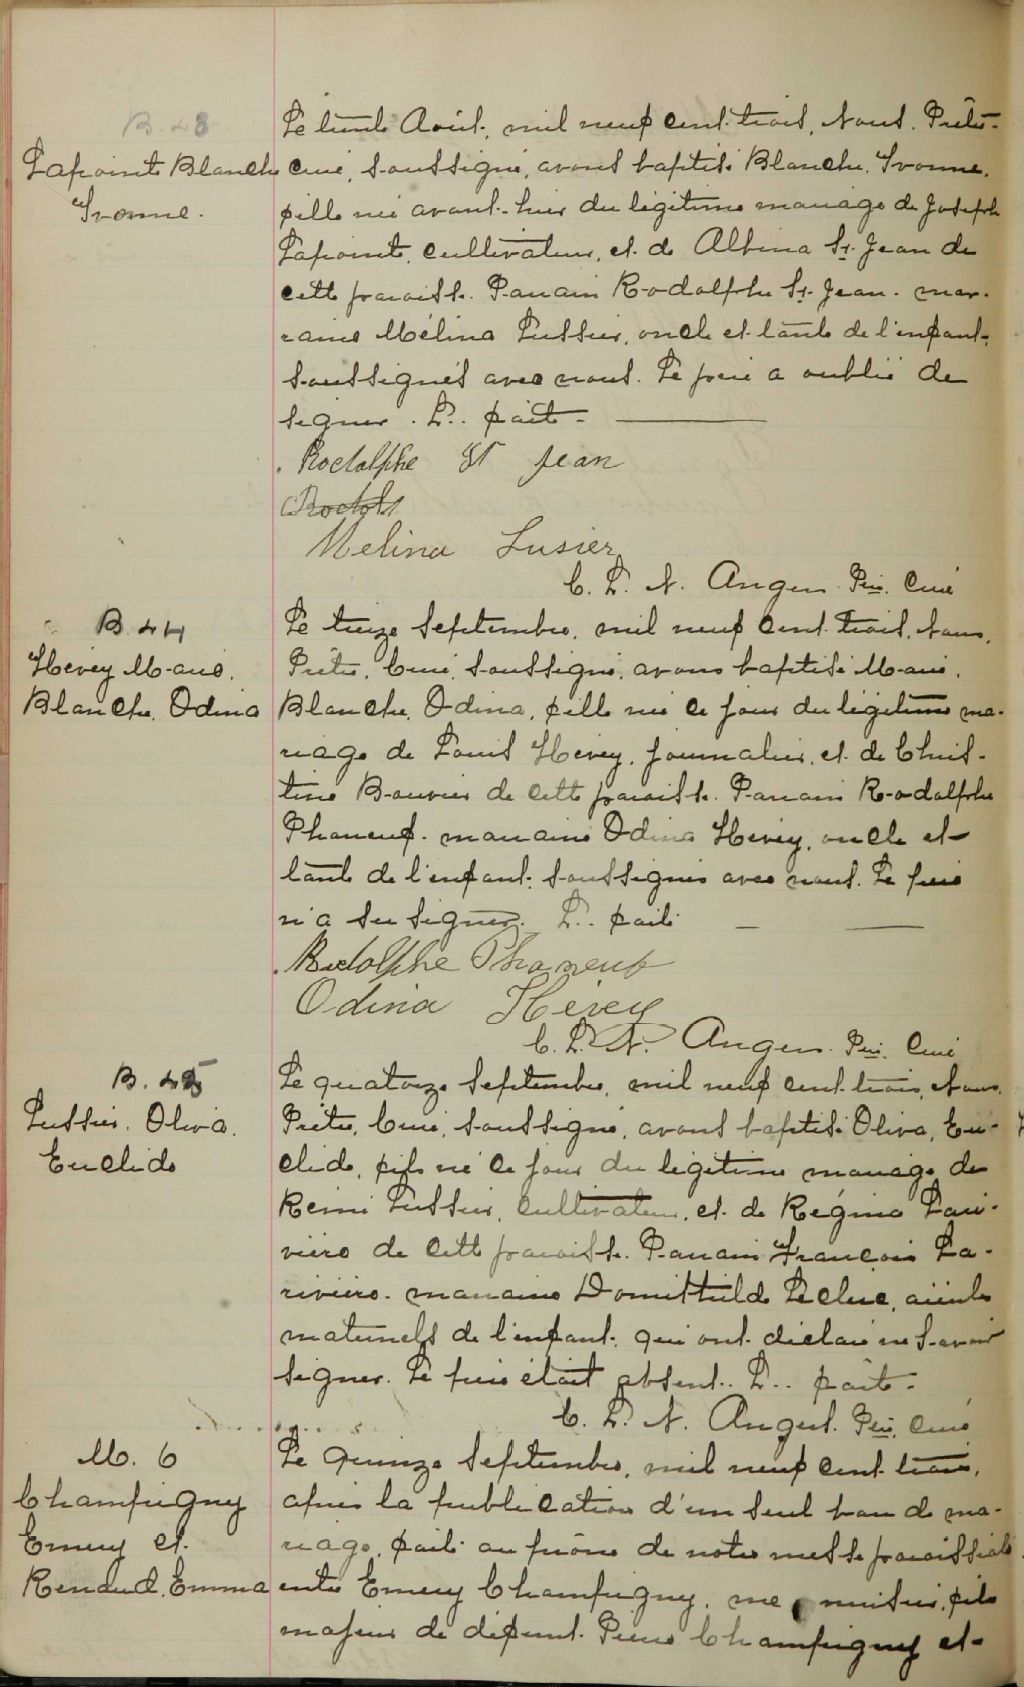 B. 43
Lapointe Blanche
Yvonne.
Le trente Août, mil neuf cent trois, Nous, Prêtre,
curé, soussigné, avons baptisé Blanche, Yvonne,
fille née avant-hier du légitime mariage de Joseph
Lapointe, cultivateur, et de Albina St. Jean de
cette paroisse. Parrain Rodolphe St. Jean. mar-
raine Mélina Lussier, oncle et tante de l'enfant,
soussignés avec nous. Le père a oublié de
signer. L.. faite.
Rodolphe St Jean
Rodol
Melina Lusier
C. L. N. Angers Ptre. Curé
B. 44
Hévey Marie.
Blanche. Odina
Le treize Septembre, mil neuf cent trois, Nous,
Prêtre, Curé, soussigné, avons baptisé Marie,
Blanche, Odina, fille née ce jour du légitime ma-
riage de Louis Hévey, journalier, et de Chris-
tine Bouvier de cette paroisse. Parrain Rodolphe
Phaneuf. marraine Odina Hévey, oncle et
tante de l'enfant, soussignés avec nous. Le père
n'a su signer. L.. faite
Rodolphe Phaneuf
Odina Hévey
C. L. N. Angers Ptre. Curé
B. 45
Lussier. Oliva.
Euclide
Le quatorze Septembre, mil neuf cent trois, Nous
Prêtre, Curé, soussigné, avons baptisé Oliva, Eu-
clide, fils né ce jour du légitime mariage de
Rémi Lussier, cultivateur, et de Régina Lari-
vière de cette paroisse. Parrain François La-
rivière. marraine Domithilde Leclerc, aïeuls
maternels de l'enfant, qui ont déclaré ne savoir
signer. Le père était absent. L.. faite.
C. L. N. Angers. Ptre, Curé
M. 6
Champigny
Emery et.
Renaud. Emma
Le quinze Septembre, mil neuf cent trois,
après la publication d'un seul ban de ma-
riage, faite au prône de notre messe paroissiale
entre Emery Champigny, menuisier, fils
majeur de défunt Pierre Champigny et